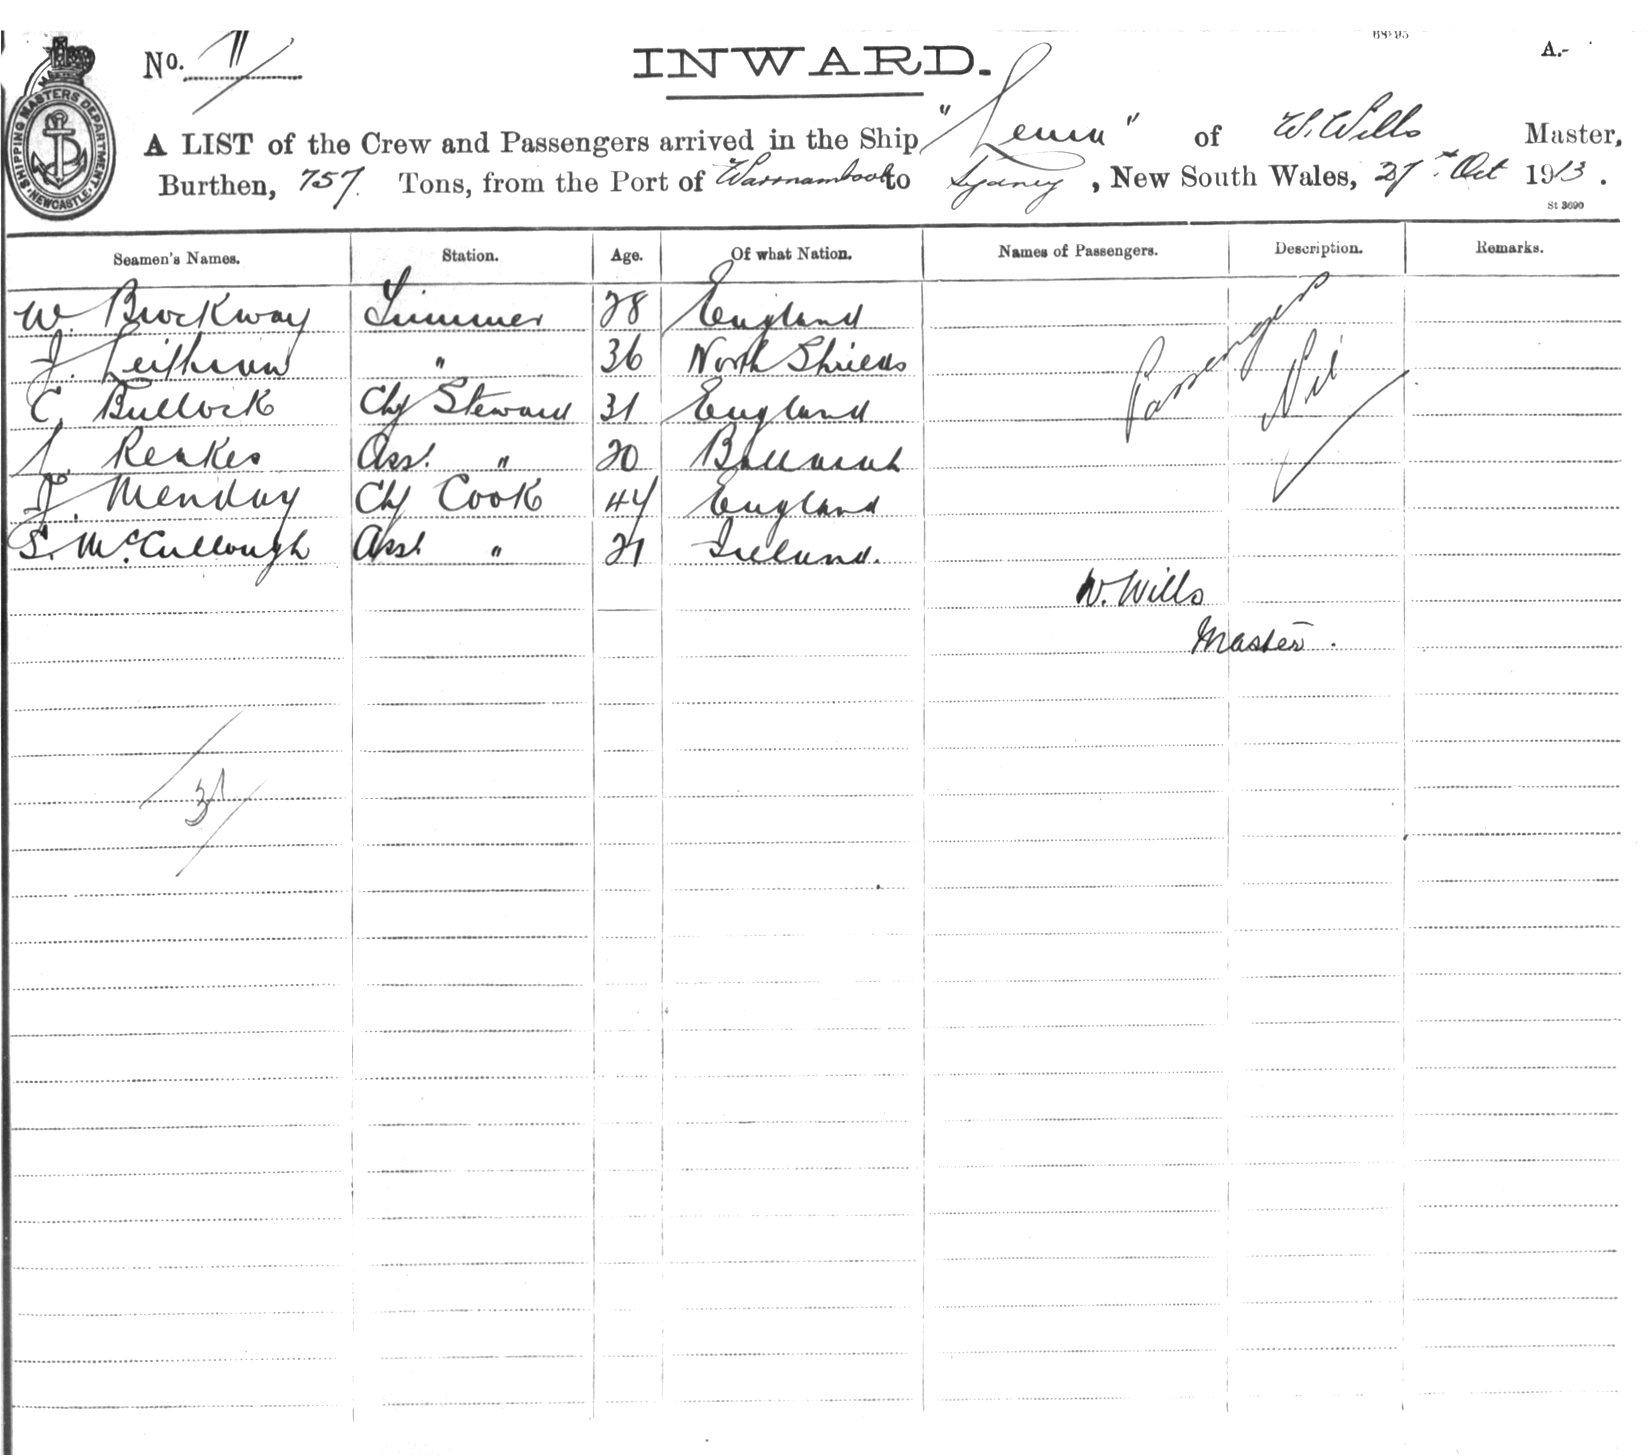 No. 11
INWARD.
A.-
SHIPPING MASTERS DEPARTMENT
NEWCASTLE
A LIST of the Crew and Passengers arrived in the Ship " " of W. Wills Master,
Burthen, 757 Tons, from the Port of Warrnambool to Sydney, New South Wales, 27th Oct 1913.
St 3690
Seamen's Names. Station. Age. Of what Nation. Names of Passengers. Description. Remarks.
W. Brockway Trimmer 28 England
J. 36 North Shields
C. Bullock Chf Steward 31 England
J. Reakes Asst. " 20 Ballarat
J. Menday Chf Cook 44 England
S. McCullough Asst " 21 Ireland.
Passengers
Nil
W. Wills
Master.
31